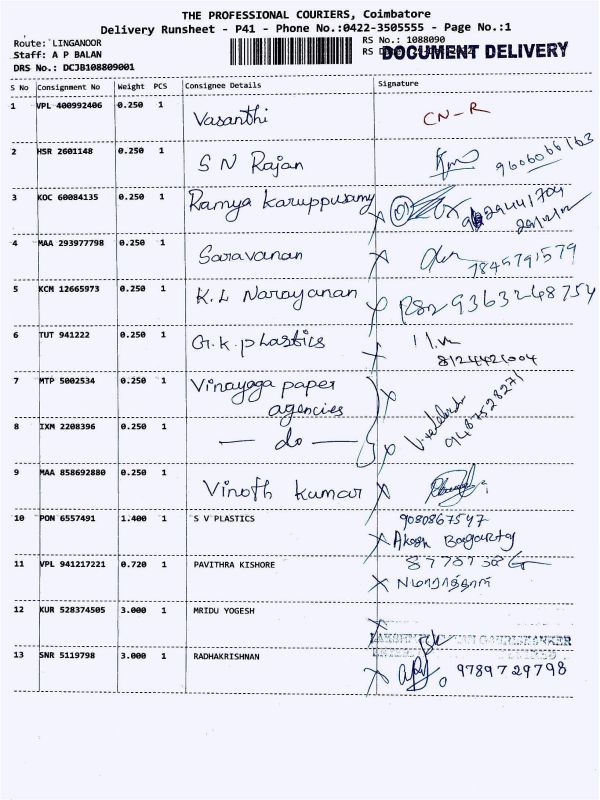 THE PROFESSIONAL COURIERS, Coimbatore
Delivery Runsheet - P41 - Phone No.:0422-3505555 - Page No.:1
Route: LINGANOOR
RS No.: 1088090
Staff: A P BALAN
RS
DOCUMENT DELIVERY
DRS No.: DCJB108809001
S No Consignment No Weight PCS Consignee Details Signature
1 VPL 400992406 0.250 1 Vasanthi CN-R
2 HSR 2601148 0.250 1 S N Rajan 9606066163
3 KOC 60084135 0.250 1 Ramya Karuppusamy
4 MAA 293977798 0.250 1 Saravanan 7845791579
5 KCM 12665973 0.250 1 K.L Narayanan 9363248754
6 TUT 941222 0.250 1 G.K plastics
8124421004
7 MTP 5002534 0.250 1 Vinayaga paper
agencies
9487528271
8 IXM 2208396 0.250 1 — do —
9 MAA 858692880 0.250 1 Vinoth kumar
10 PON 6557491 1.400 1 S V PLASTICS 9080867547
Akash
11 VPL 941217221 0.720 1 PAVITHRA KISHORE
12 KUR 528374505 3.000 1 MRIDU YOGESH
13 SNR 5119798 3.000 1 RADHAKRISHNAN 9789729798